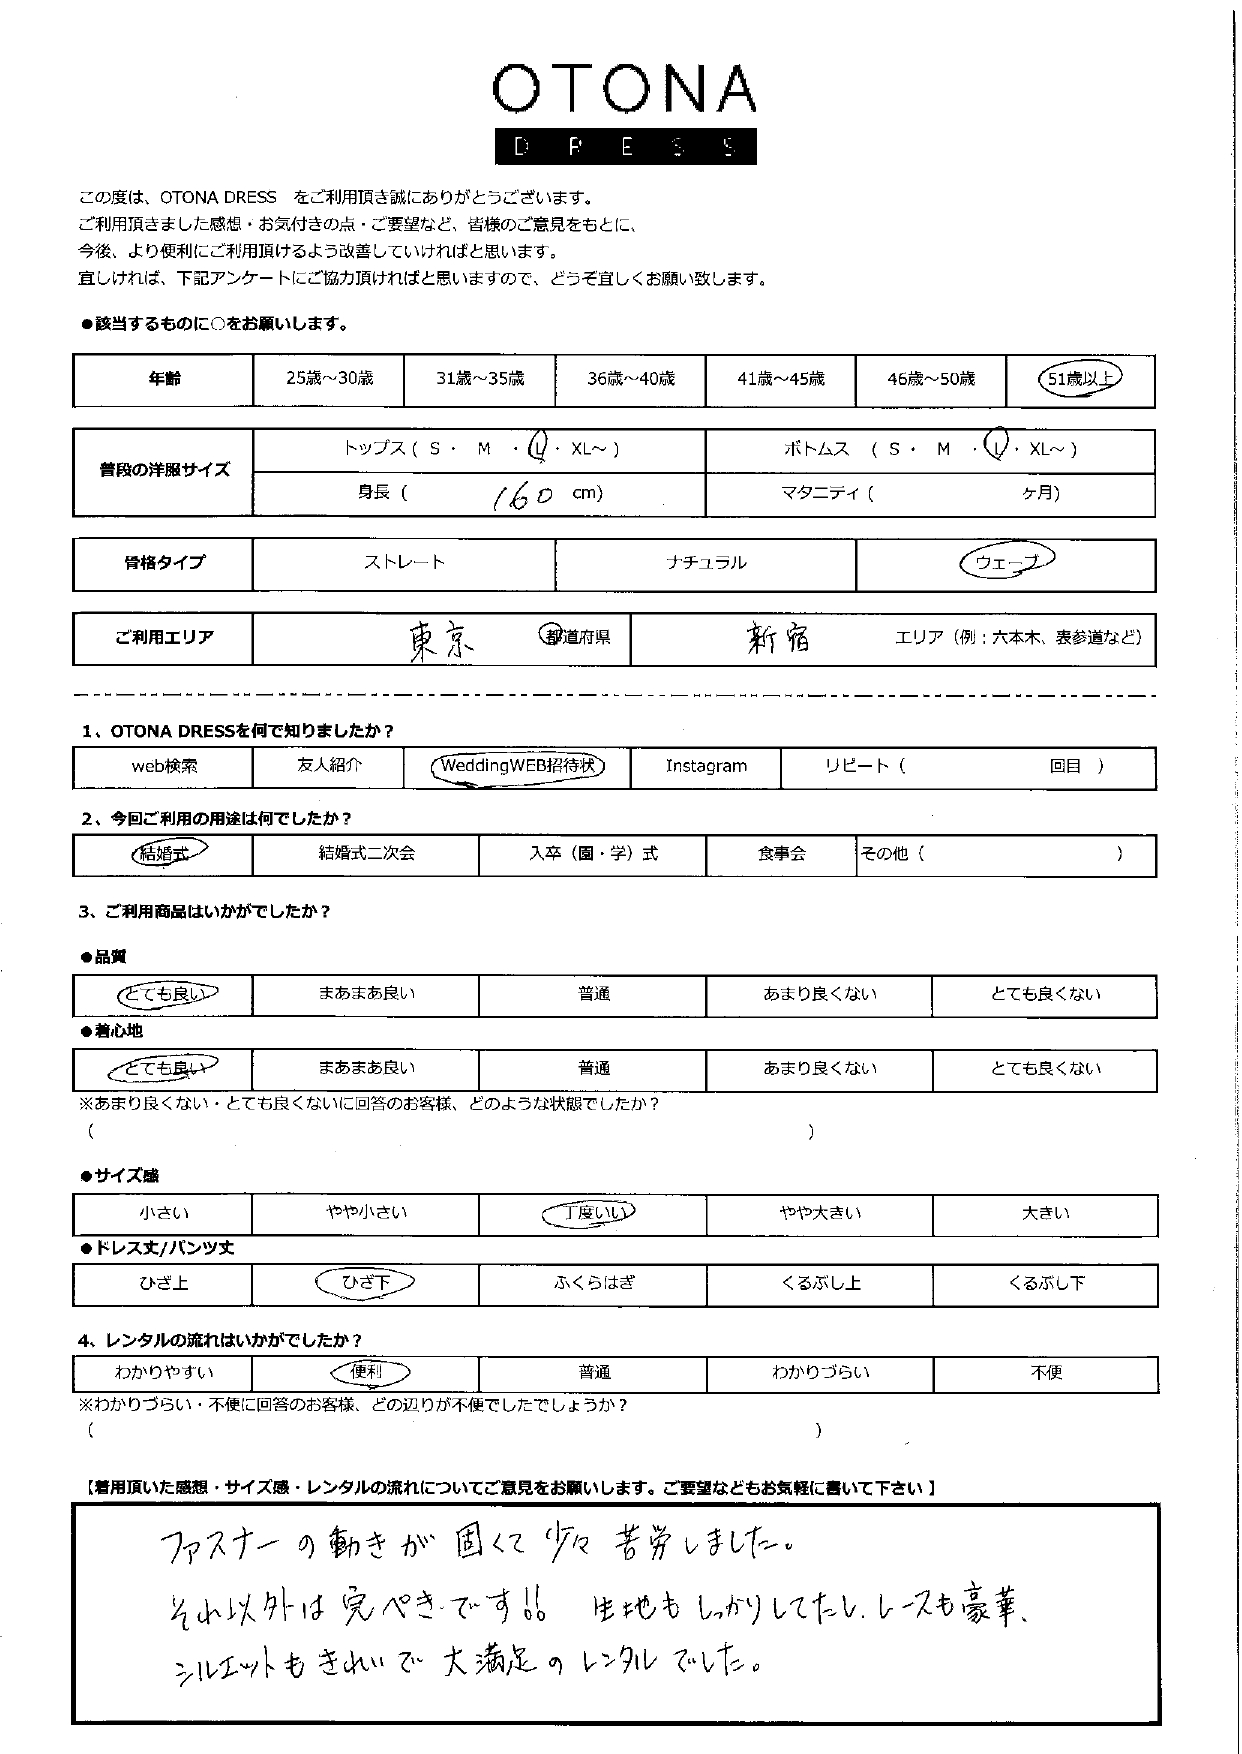 OTONA
DRESS
この度は、OTONA DRESS をご利用頂き誠にありがとうございます。
ご利用頂きました感想・お気付きの点・ご要望など、皆様のご意見をもとに、
今後、より便利にご利用頂けるよう改善していければと思います。
宜しければ、下記アンケートにご協力頂ければと思いますので、どうぞ宜しくお願い致します。
●該当するものに○をお願いします。
年齢 25歳～30歳 31歳～35歳 36歳～40歳 41歳～45歳 46歳～50歳 51歳以上
普段の洋服サイズ トップス ( S ・ M ・ L ・ XL～ ) ボトムス ( S ・ M ・ L ・ XL～ )
身長 ( 160 cm) マタニティ ( ヶ月)
骨格タイプ ストレート ナチュラル ウェーブ
ご利用エリア 東京 都道府県 新宿 エリア（例：六本木、表参道など）
1、OTONA DRESSを何で知りましたか？
web検索 友人紹介 WeddingWEB招待状 Instagram リピート（ 回目 ）
2、今回ご利用の用途は何でしたか？
結婚式 結婚式二次会 入卒（園・学）式 食事会 その他（ ）
3、ご利用商品はいかがでしたか？
●品質
とても良い まあまあ良い 普通 あまり良くない とても良くない
●着心地
とても良い まあまあ良い 普通 あまり良くない とても良くない
※あまり良くない・とても良くないに回答のお客様、どのような状態でしたか？
( )
●サイズ感
小さい やや小さい 丁度いい やや大きい 大きい
●ドレス丈/パンツ丈
ひざ上 ひざ下 ふくらはぎ くるぶし上 くるぶし下
4、レンタルの流れはいかがでしたか？
わかりやすい 便利 普通 わかりづらい 不便
※わかりづらい・不便に回答のお客様、どの辺りが不便でしたでしょうか？
( )
【着用頂いた感想・サイズ感・レンタルの流れについてご意見をお願いします。ご要望などもお気軽に書いて下さい 】
ファスナーの動きが固くて少々苦労しました。
それ以外は完ぺきです!! 生地もしっかりしてたし、レースも豪華、
シルエットもきれいで大満足のレンタルでした。